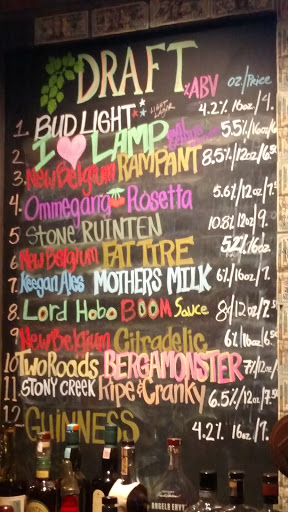 DRAFT %ABV oz/Price
1. BUD LIGHT LIGHT LAGER 4.2% 16oz/4.
2. I LAMP 5.5%/16oz/6
3. New Belgium RAMPANT 8.5%/12oz/6.50
4. Ommegang Rosetta 5.6%/12oz/7.5
5 STONE RUINTEN 10.8%/12oz/9.
6. New Belgium FAT TIRE 5.2%/16oz.
7. Keegan Ales MOTHERS MILK 6%/16oz/7.
8. Lord Hobo BOOM Sauce 8%/12oz/7.5
9. New Belgium Citradelic 6%/16oz/6.5
10 Two Roads BERGAMONSTER 7%/12oz/
11. STONY CREEK Ripe & Cranky 6.5%/12oz/7.50
12- GUINNESS 4.2% 16oz/7.
ANGELS ENVY